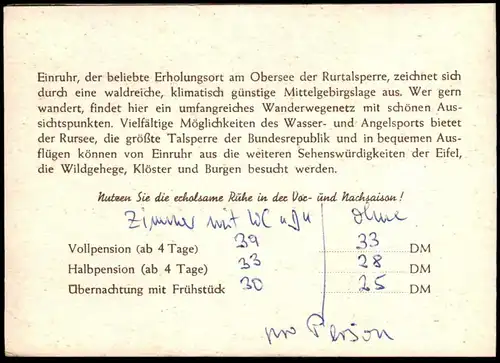 Einruhr, der beliebte Erholungsort am Obersee der Rurtalsperre, zeichnet sich
durch eine waldreiche, klimatisch günstige Mittelgebirgslage aus. Wer gern
wandert, findet hier ein umfangreiches Wanderwegenetz mit schönen Aus-
sichtspunkten. Vielfältige Möglichkeiten des Wasser- und Angelsports bietet
der Rursee, die größte Talsperre der Bundesrepublik und in bequemen Aus-
flügen können von Einruhr aus die weiteren Sehenswürdigkeiten der Eifel,
die Wildgehege, Klöster und Burgen besucht werden.
Nutzen Sie die erholsame Ruhe in der Vor- und Nachsaison!
Zimmer mit WC u Du ohne
Vollpension (ab 4 Tage) 39 33 DM
Halbpension (ab 4 Tage) 33 28 DM
Übernachtung mit Frühstück 30 25 DM
pro Person